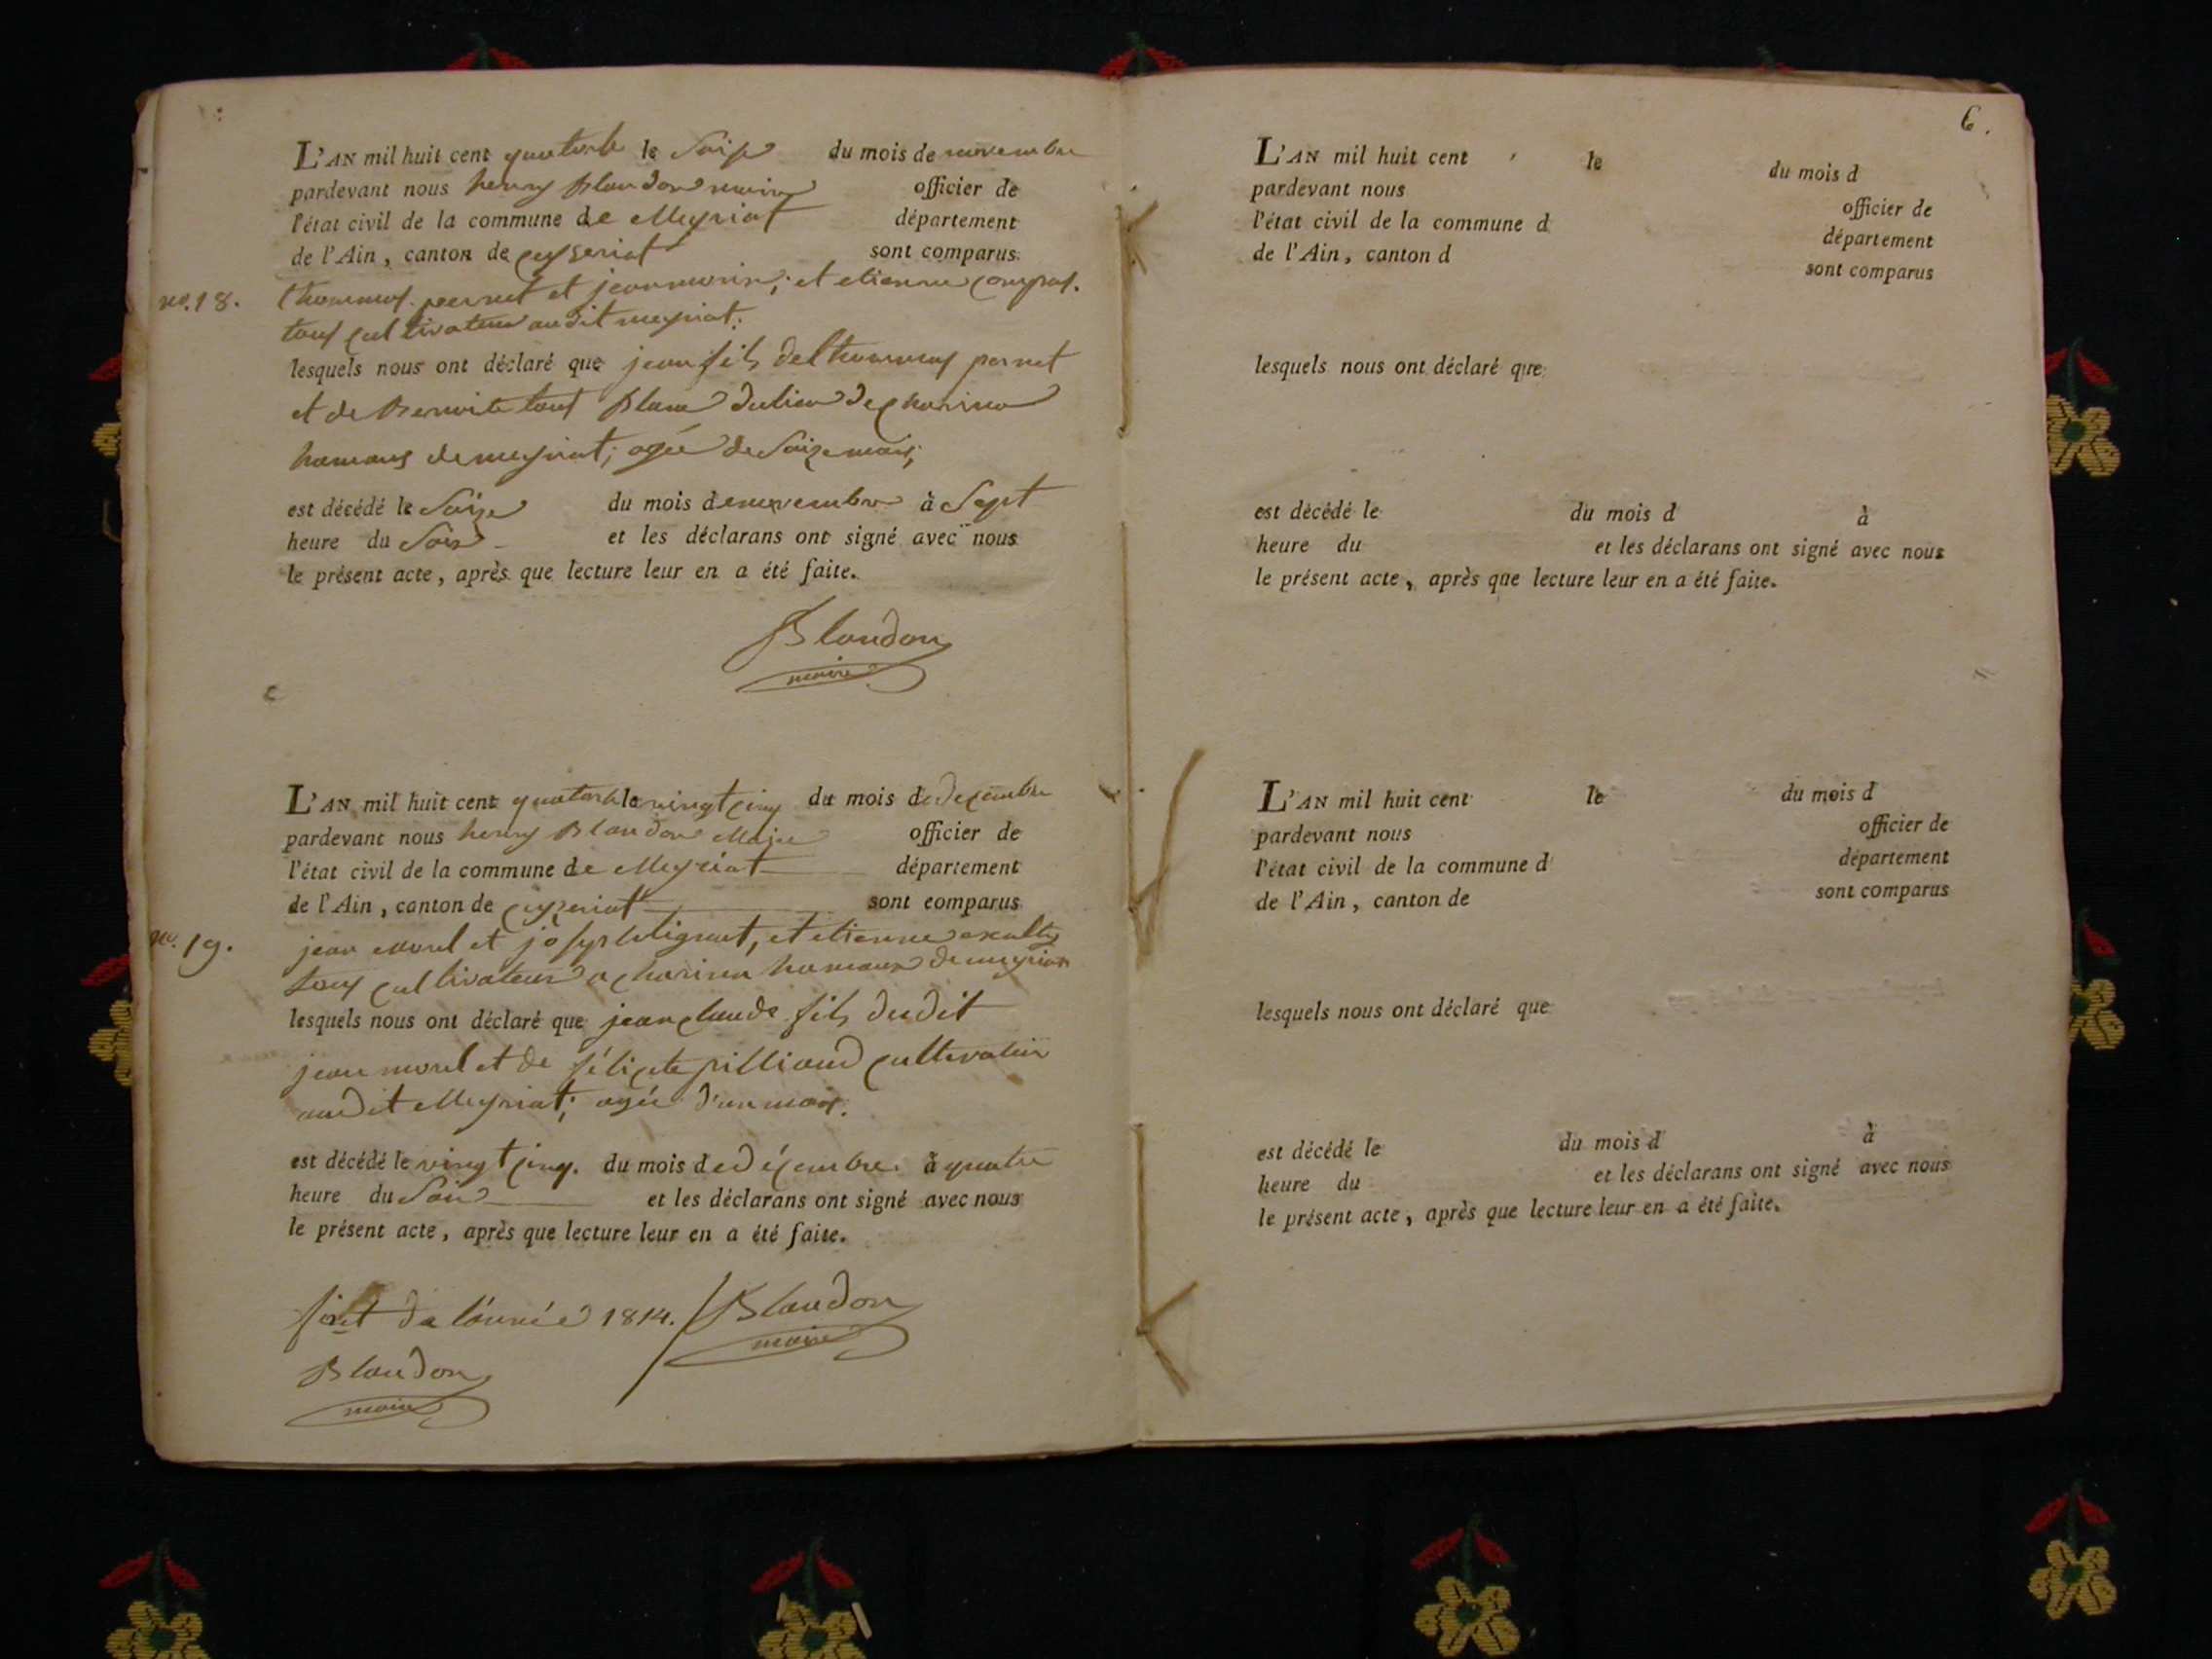 L'AN mil huit cent quatorze le Saize du mois de novembre
pardevant nous henry Blandon maire officier de
l'état civil de la commune de Meyriat département
de l'Ain, canton de ceyzeriat sont comparus.
no. 18. thommas pernet et jean morin, et etienne
tous cultivateur audit meyriat.
lesquels nous ont déclaré que jean fils de thommas pernet
et de Benoite Blanc du lieu de charina
hamaus de meyriat; agée de Saize mois;
est décédé le Saize du mois de novembre à Sept
heure du Soir et les déclarans ont signé avec nous
le présent acte, après que lecture leur en a été faite.
Blandon
maire
L'AN mil huit cent quatorze le vingt cinq du mois de decembre
pardevant nous henry Blandon Maire officier de
l'état civil de la commune de Meyriat département
de l'Ain, canton de ceyzeriat sont comparus
no. 19. jean morel et joseph et etienne
tous cultivateur a charinaz hamaux de meyriat
lesquels nous ont déclaré que jean claude fils dudit
jean morel et de pilliand cultivateur
audit Meyriat; agée d'un mois.
est décédé le vingt cinq. du mois de décembre à quatre
heure du Soir et les déclarans ont signé avec nous
le présent acte, après que lecture leur en a été faite.
de l'année 1814. Blandon
maire
Blandon
maire
6.
L'AN mil huit cent le du mois d
pardevant nous officier de
l'état civil de la commune d département
de l'Ain, canton d sont comparus
lesquels nous ont déclaré que
est décédé le du mois d à
heure du et les déclarans ont signé avec nous
le présent acte, après que lecture leur en a été faite.
L'AN mil huit cent le du mois d
pardevant nous officier de
l'état civil de la commune d département
de l'Ain, canton de sont comparus
lesquels nous ont déclaré que
est décédé le du mois d à
heure du et les déclarans ont signé avec nous
le présent acte, après que lecture leur en a été faite.